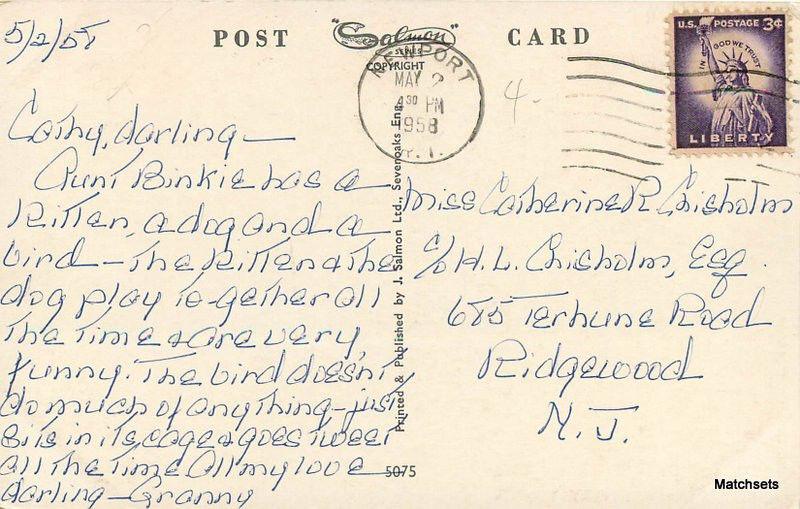 5/2/58
POST "Salmon" CARD
SERIES
COPYRIGHT
NEWPORT
MAY 2
4 30 PM
1958
R. I.
4-
U.S. POSTAGE 3¢
IN GOD WE TRUST
LIBERTY
Cathy, darling —
Aunt Binkie has a
kitten, a dog and a
bird — The kitten & the
dog play together all
the time & are very
funny. The bird doesn't
do much of anything — just
sits in its cage & goes tweet
all the time All my love
darling — Granny
Printed & Published by J. Salmon Ltd., Sevenoaks Eng.
5075
Miss Catherine R Chisholm
c/o H. L. Chisholm, Esq.
685 Terhune Road
Ridgewood
N. J.
Matchsets